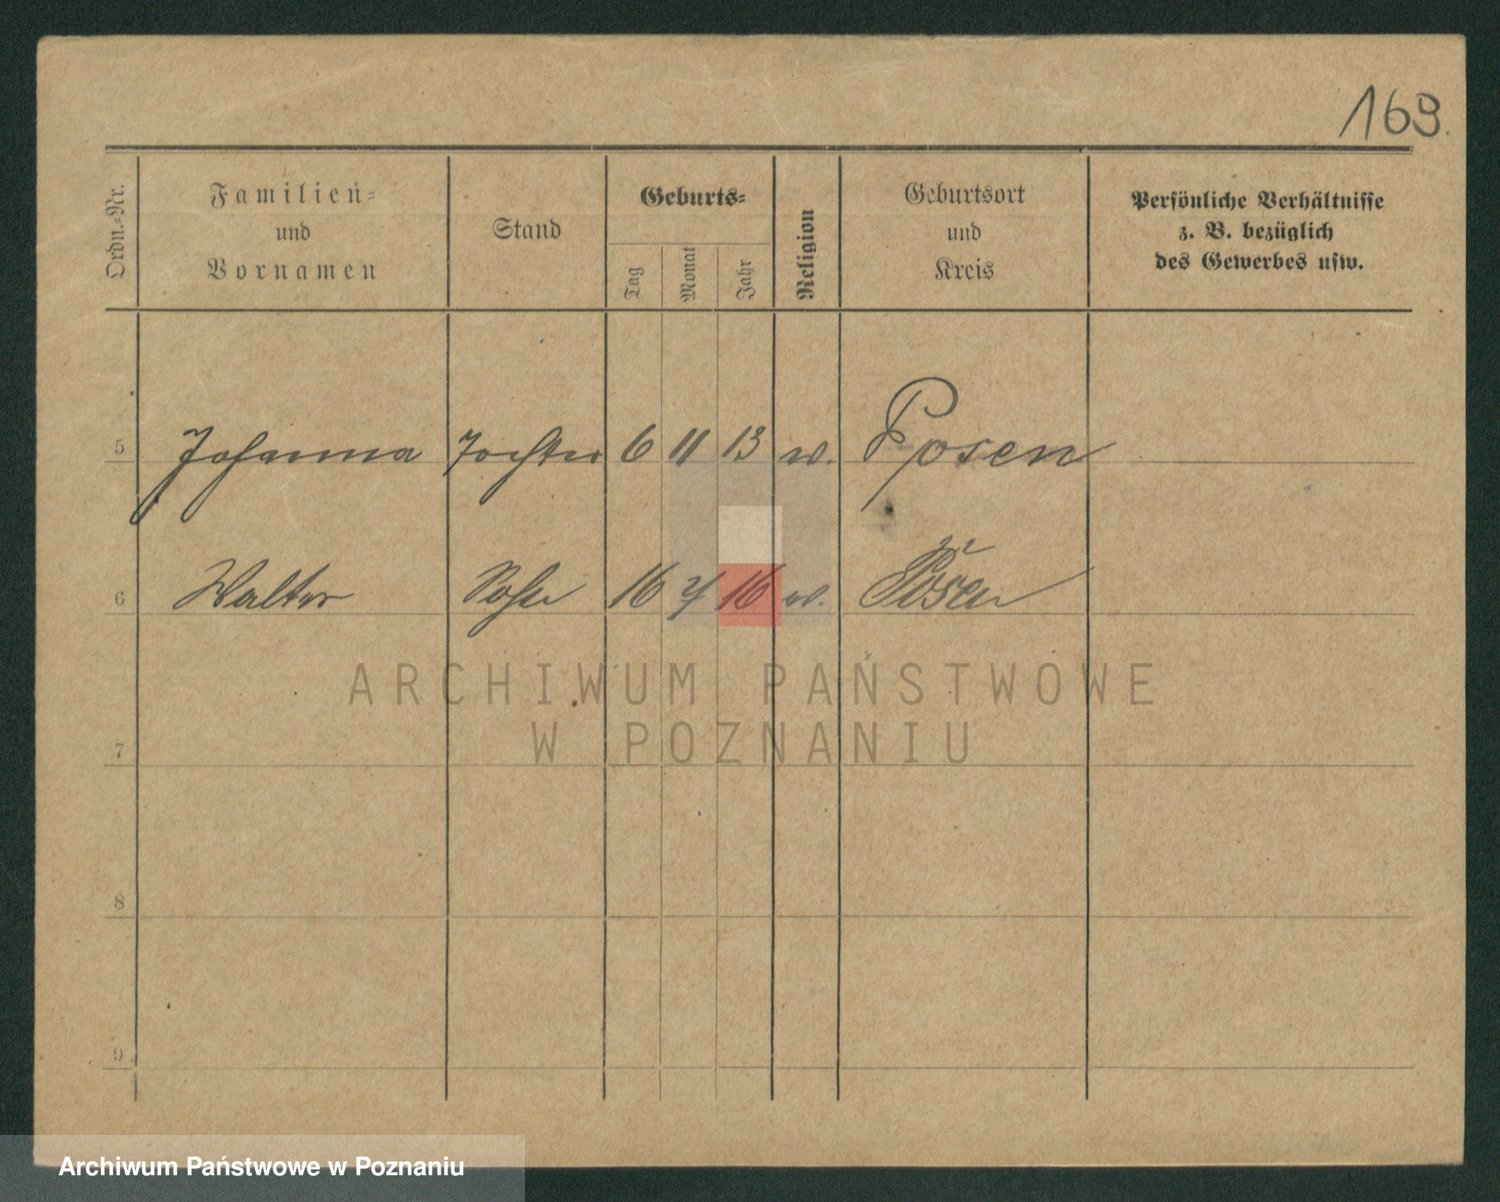 169.
Ordn.-Nr.
Familien-
und
Vornamen
Stand
Geburts-
Tag
Monat
Jahr
Religion
Geburtsort
und
Kreis
Persönliche Verhältnisse
z. B. bezüglich
des Gewerbes usw.
5 Johanna Tochter 6 11 13 w. Posen
6 Walter Sohn 16 4 16 w. Posen
ARCHIWUM PAŃSTWOWE
W POZNANIU
7
8
9
Archiwum Państwowe w Poznaniu